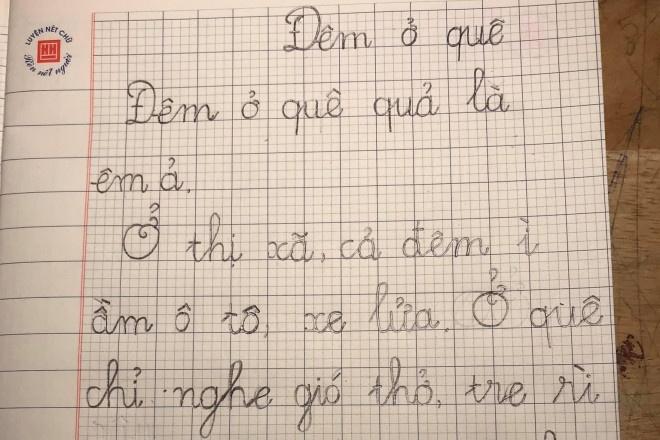 LUYỆN NÉT CHỮ
HH
Rèn nết người
Đêm ở quê
Đêm ở quê quả là
êm ả.
Ở thị xã, cả đêm ì
ầm ô tô, xe lửa. Ở quê
chỉ nghe gió thở, tre rì